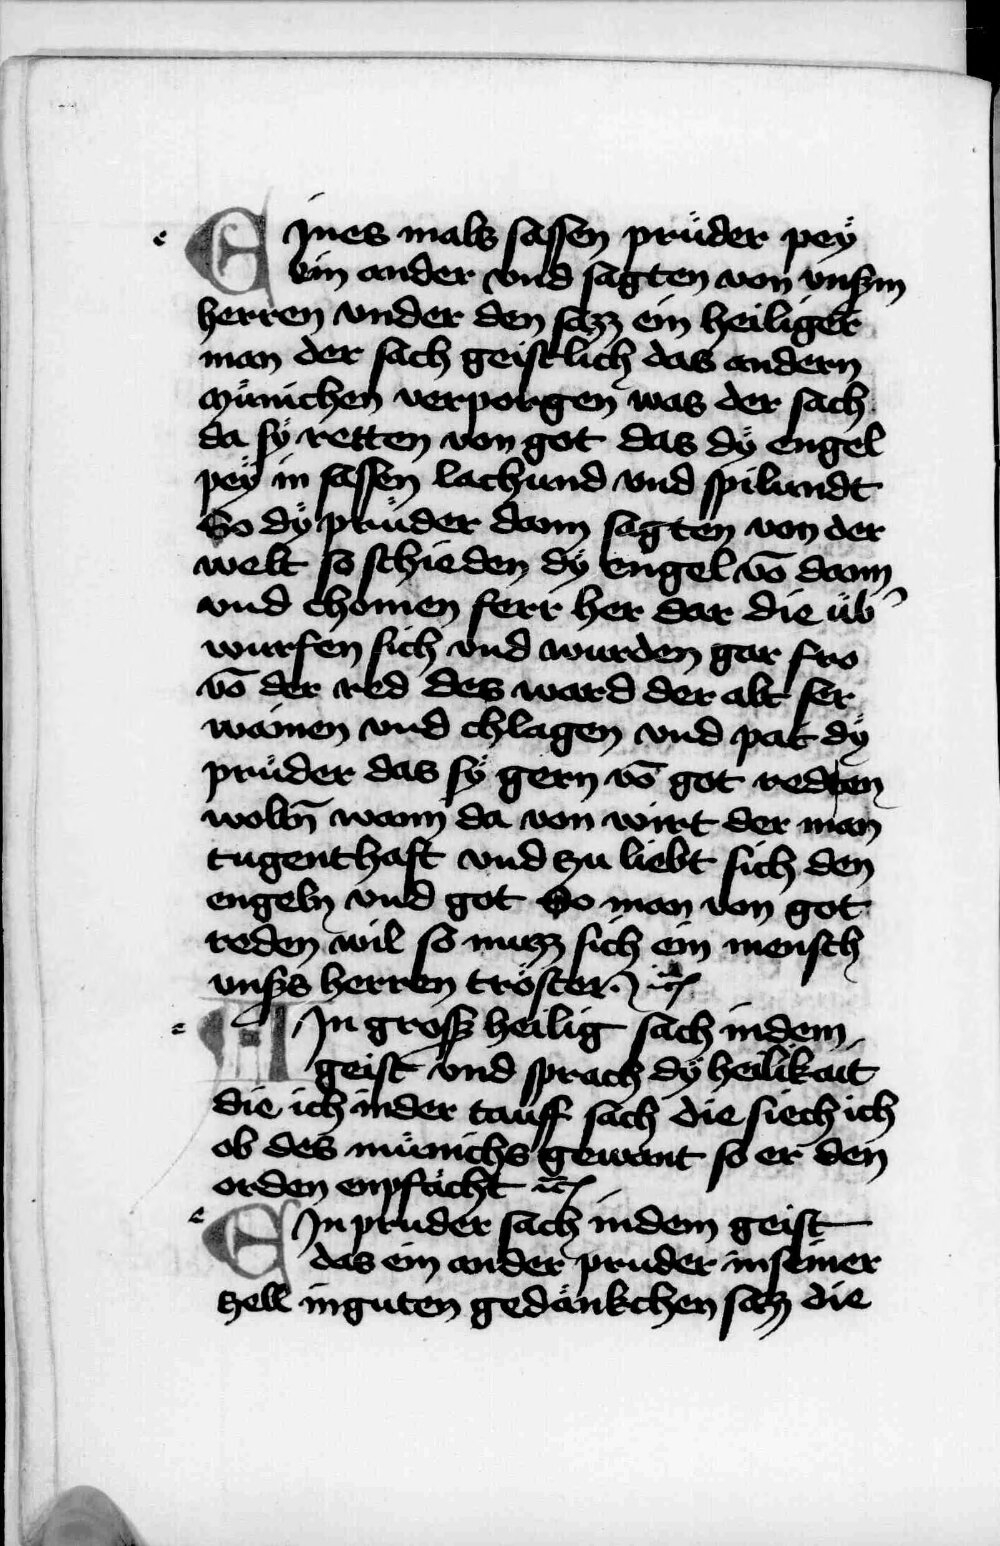 Eines mals sassen prüder pey
ein ander vnd sagten von vnſerm
herren vnder den sazz ein heiliger
man der sach geistlich das andern
münichen verporgen was der sach
da sÿ retten von got das dÿ engel
peÿ in sassen lachund vnd spilundt
So dÿ prüder dann sagten von der
welt so schieden dÿ engel vō dann
vnd chomen ferr her dar die üb᾽
wurfen sich vnd wurden gar fro
vō der red des ward der alt ser
wainen vnd chlagen vnd pat dÿ
prüder das sÿ gern vō got redten
woltn̄ wann da von wirt der man
tugenthaft vnd zu liebt sich den
engeln vnd got So man von got
reden wil so muzz sich ein mensch
vnſs herren tröster ⁊c̄
Ein grosſz heilig sach in dem
geist vnd sprach dÿ heilikait
die ich in der tauff sach die siech ich
ob des münichs gewant so er den
orden enpfächt ⁊c̄
Ein pruder sach in dem geist
das ein ander pruder in seiner
zell in guten gedänkchen sazz die